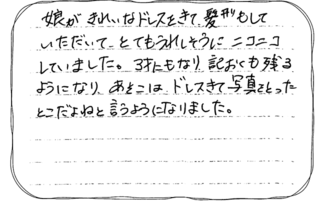 娘がきれいなドレスをきて、髪形もして
いただいて、とてもうれしそうにニコニコ
していました。3才にもなり、記おくも残る
ようになり、あそこは、ドレスきて写真をとった
とこだよねと言うようになりました。